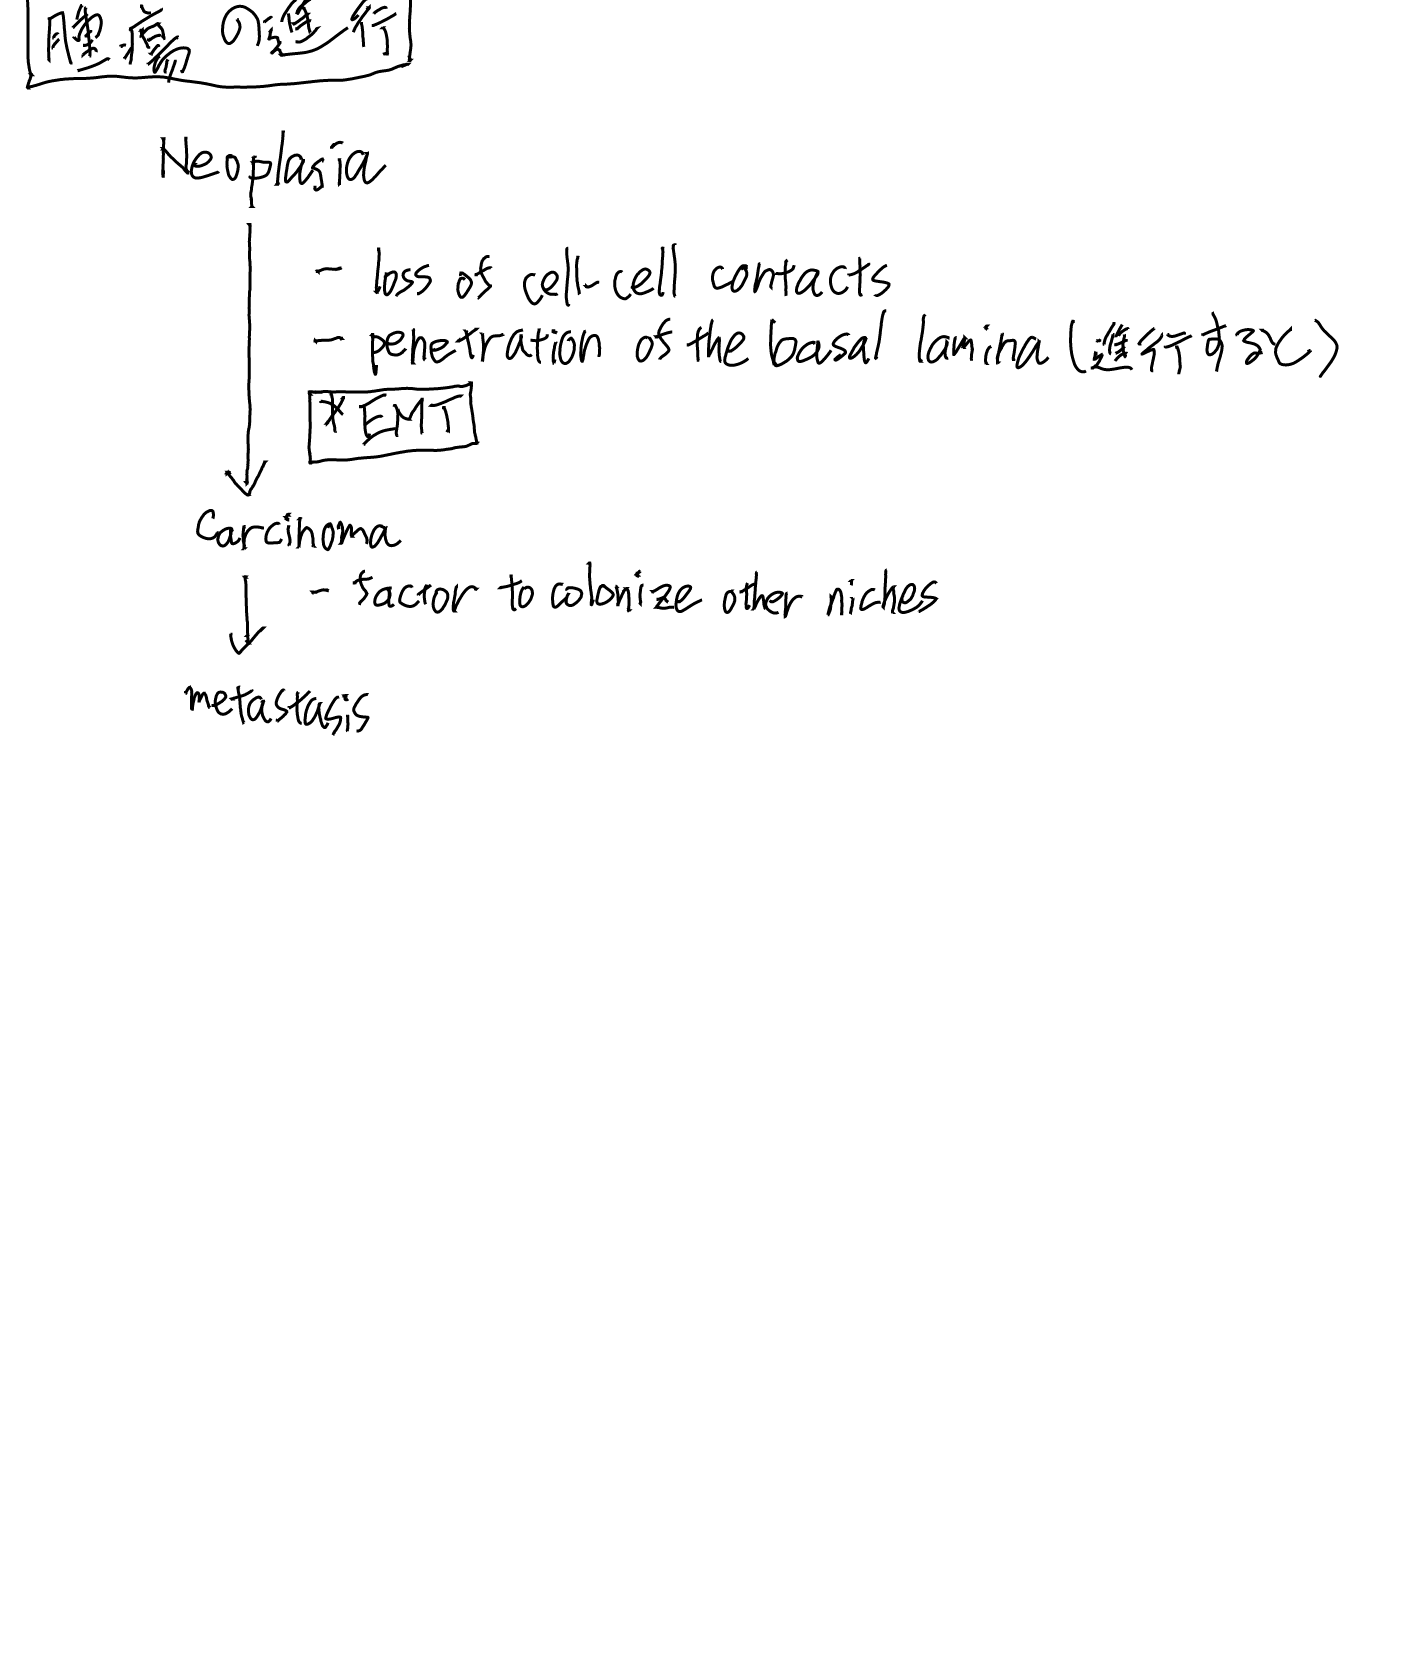 腫瘍の進行
Neoplasia
- loss of cell-cell contacts
- penetration of the basal lamina (進行すると)
* EMT
Carcinoma
- factor to colonize other niches
metastasis